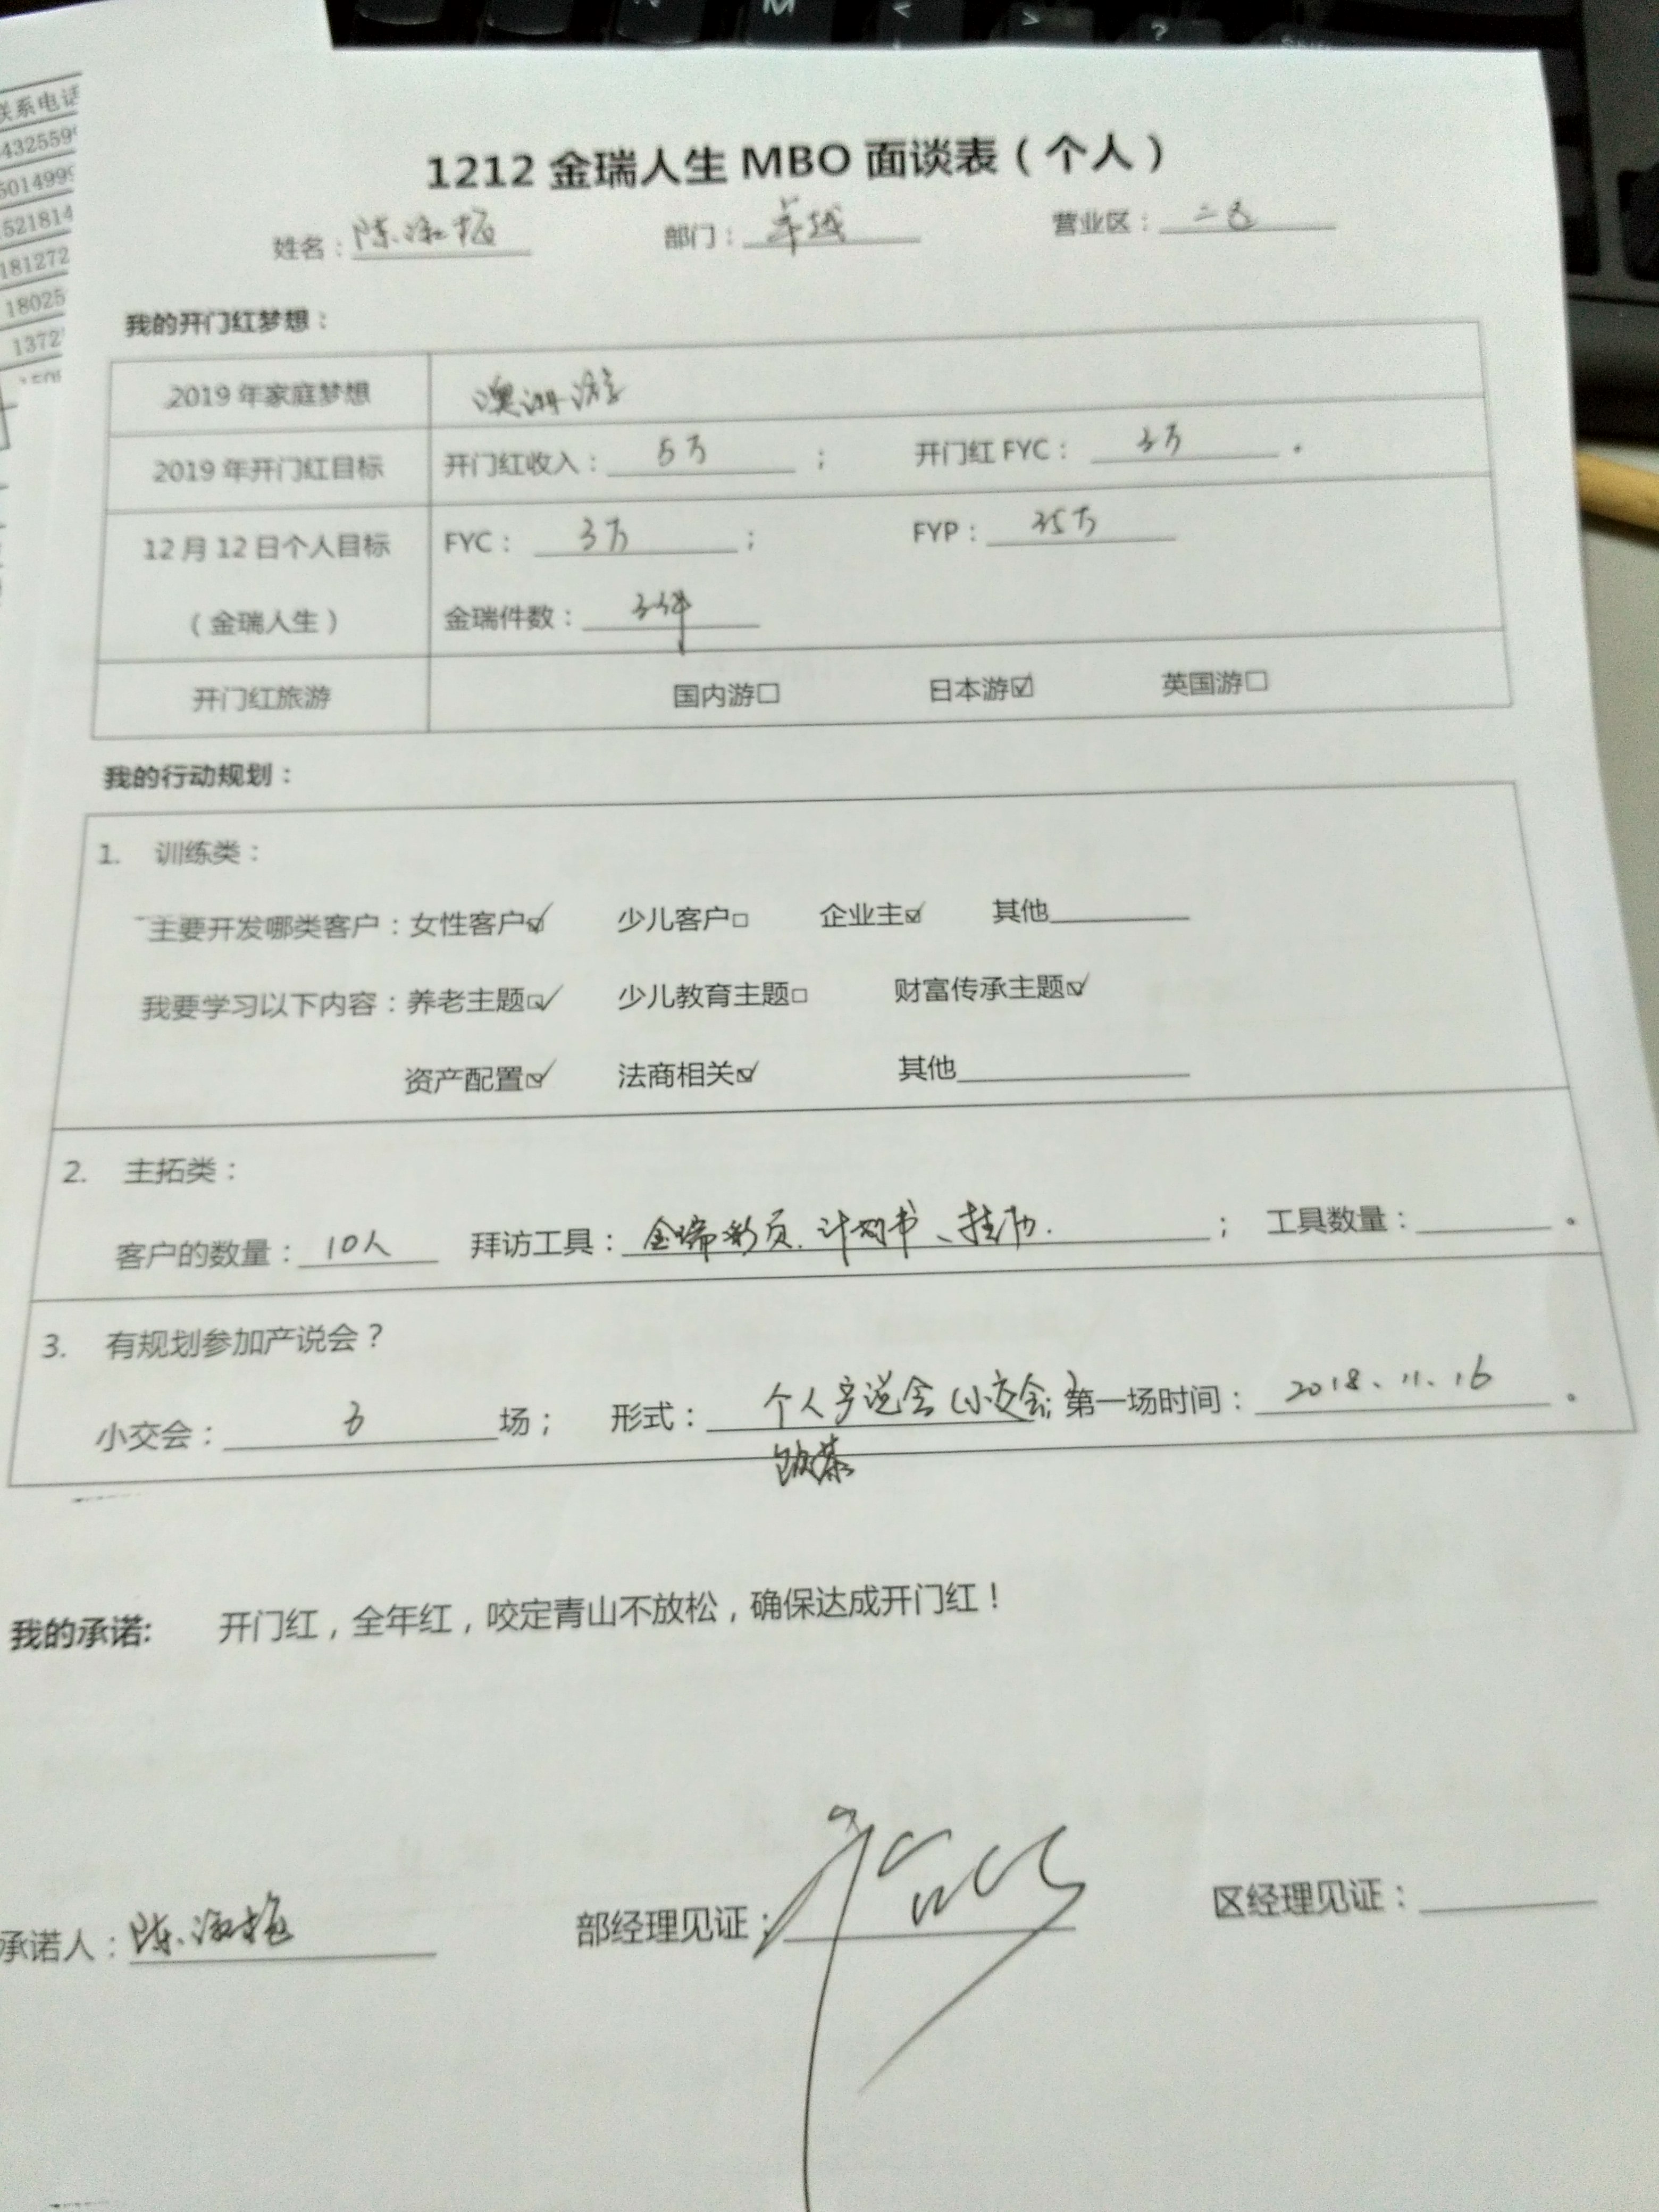 联系电话
432559
501499
521814
181272
18025
1372
1212 金瑞人生 MBO 面谈表（个人）
姓名：陈淑 部门：卓越 营业区：二区
我的开门红梦想：
2019 年家庭梦想 澳洲游
2019 年开门红目标 开门红收入：5万； 开门红 FYC：3万。
12 月 12 日个人目标 FYC：3万； FYP：35万
（金瑞人生） 金瑞件数：3件
开门红旅游 国内游□ 日本游☑ 英国游□
我的行动规划：
1. 训练类：
主要开发哪类客户：女性客户☑ 少儿客户□ 企业主☑ 其他
我要学习以下内容：养老主题☑ 少儿教育主题□ 财富传承主题☑
资产配置☑ 法商相关☑ 其他
2. 主拓类：
客户的数量：10人 拜访工具：金瑞彩页、计划书、挂历.； 工具数量：。
3. 有规划参加产说会？
小交会：3场； 形式：个人产说会（小交会）； 第一场时间：2018.11.16。
我的承诺: 开门红，全年红，咬定青山不放松，确保达成开门红！
承诺人：陈淑 部经理见证： 区经理见证：